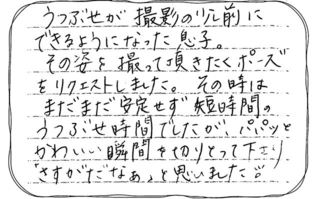 うつぶせが撮影の少し前に
できるようになった息子。
その姿を撮って頂きたくポーズ
をリクエストしました。その時は
まだまだ安定せず短時間の
うつぶせ時間でしたが、パパッと
かわいい瞬間を切りとって下さり
"さすがだなぁ"と思いました。